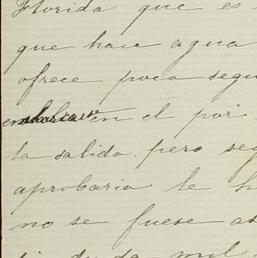 Florida que es
que hace agua
ofrece poca segu
en el por
la salida, pero seg
aprobaria le h
no se fuese as